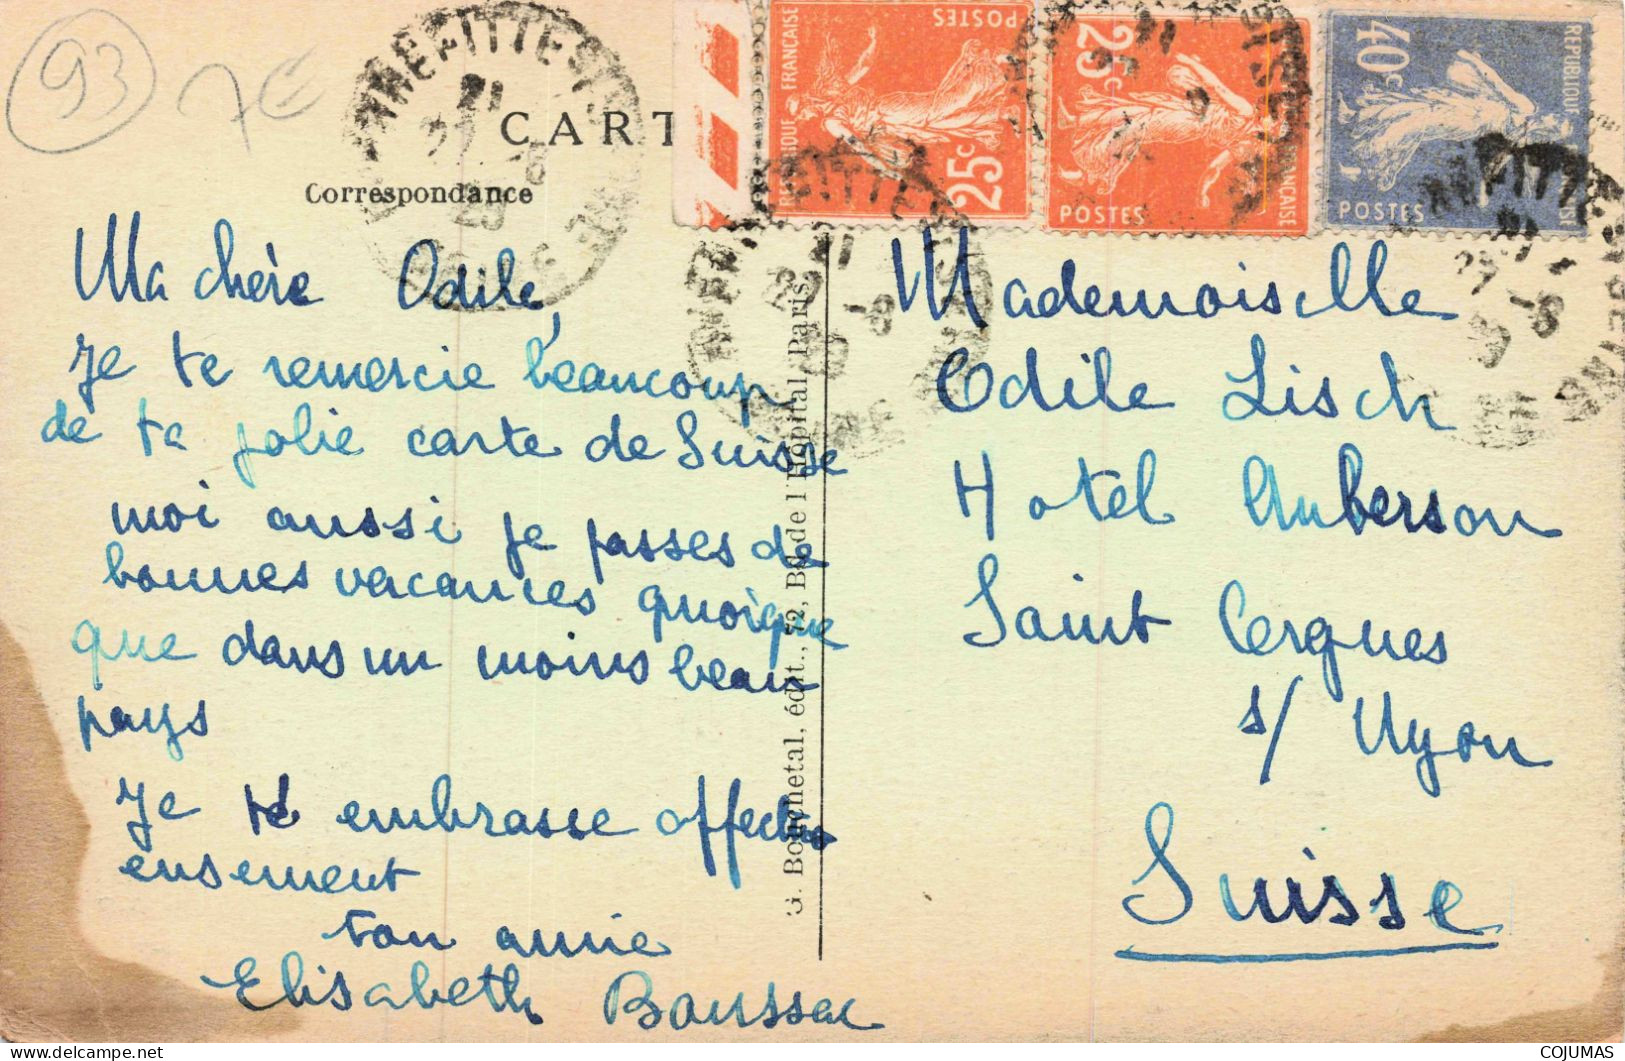 93
7€
CART
Correspondance
Ma chère Odile,
Je te remercie beaucoup
de ta jolie carte de Suisse
moi aussi je passes de
bonnes vacances quoique
que dans un moins beau
pays
Je te embrasse affectu
eusement
ton amie
Elisabeth Boussac
G. Bouchetal, édit., 72, Bd. de l'Hôpital, Paris
POSTES
REPUBLIQUE FRANÇAISE
25c
25c
POSTES
FRANÇAISE
40c
REPUBLIQUE
POSTES
PIERREFITTE
SEINE
Mademoiselle
Odile Lisch
Hotel Auberson
Saint Cergues
s/ Nyon
Suisse
COJUMAS
delcampe.net